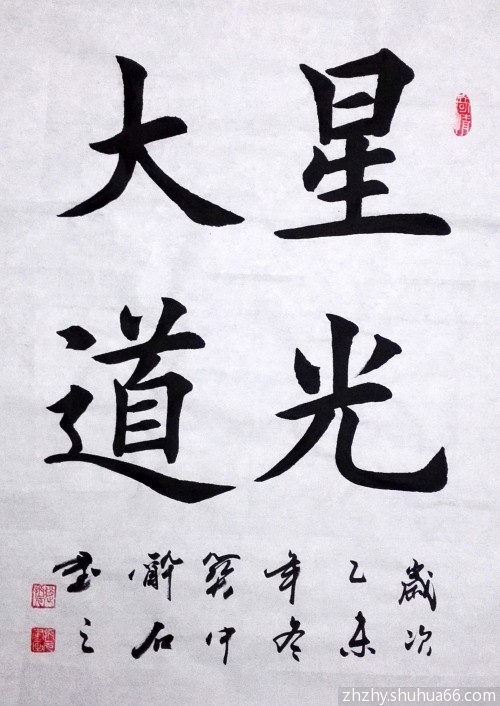 星光
大道
歲次
乙未
年冬
中
醉石
書之
zhzhy.shuhua66.com